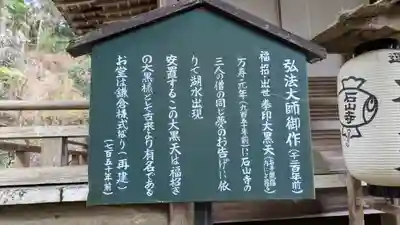 弘法大師御作(千二百年前)
福招出世 拳印大黒天
万寿元年(九百五十年前)に石山寺の
三人の僧の同じ夢のお告げに依
りて湖水出現
安置するこの大黒天は福招き
の大黒様として古来より有名である
お堂は鎌倉様式造り(再建)
(七百五十年前)
石山寺